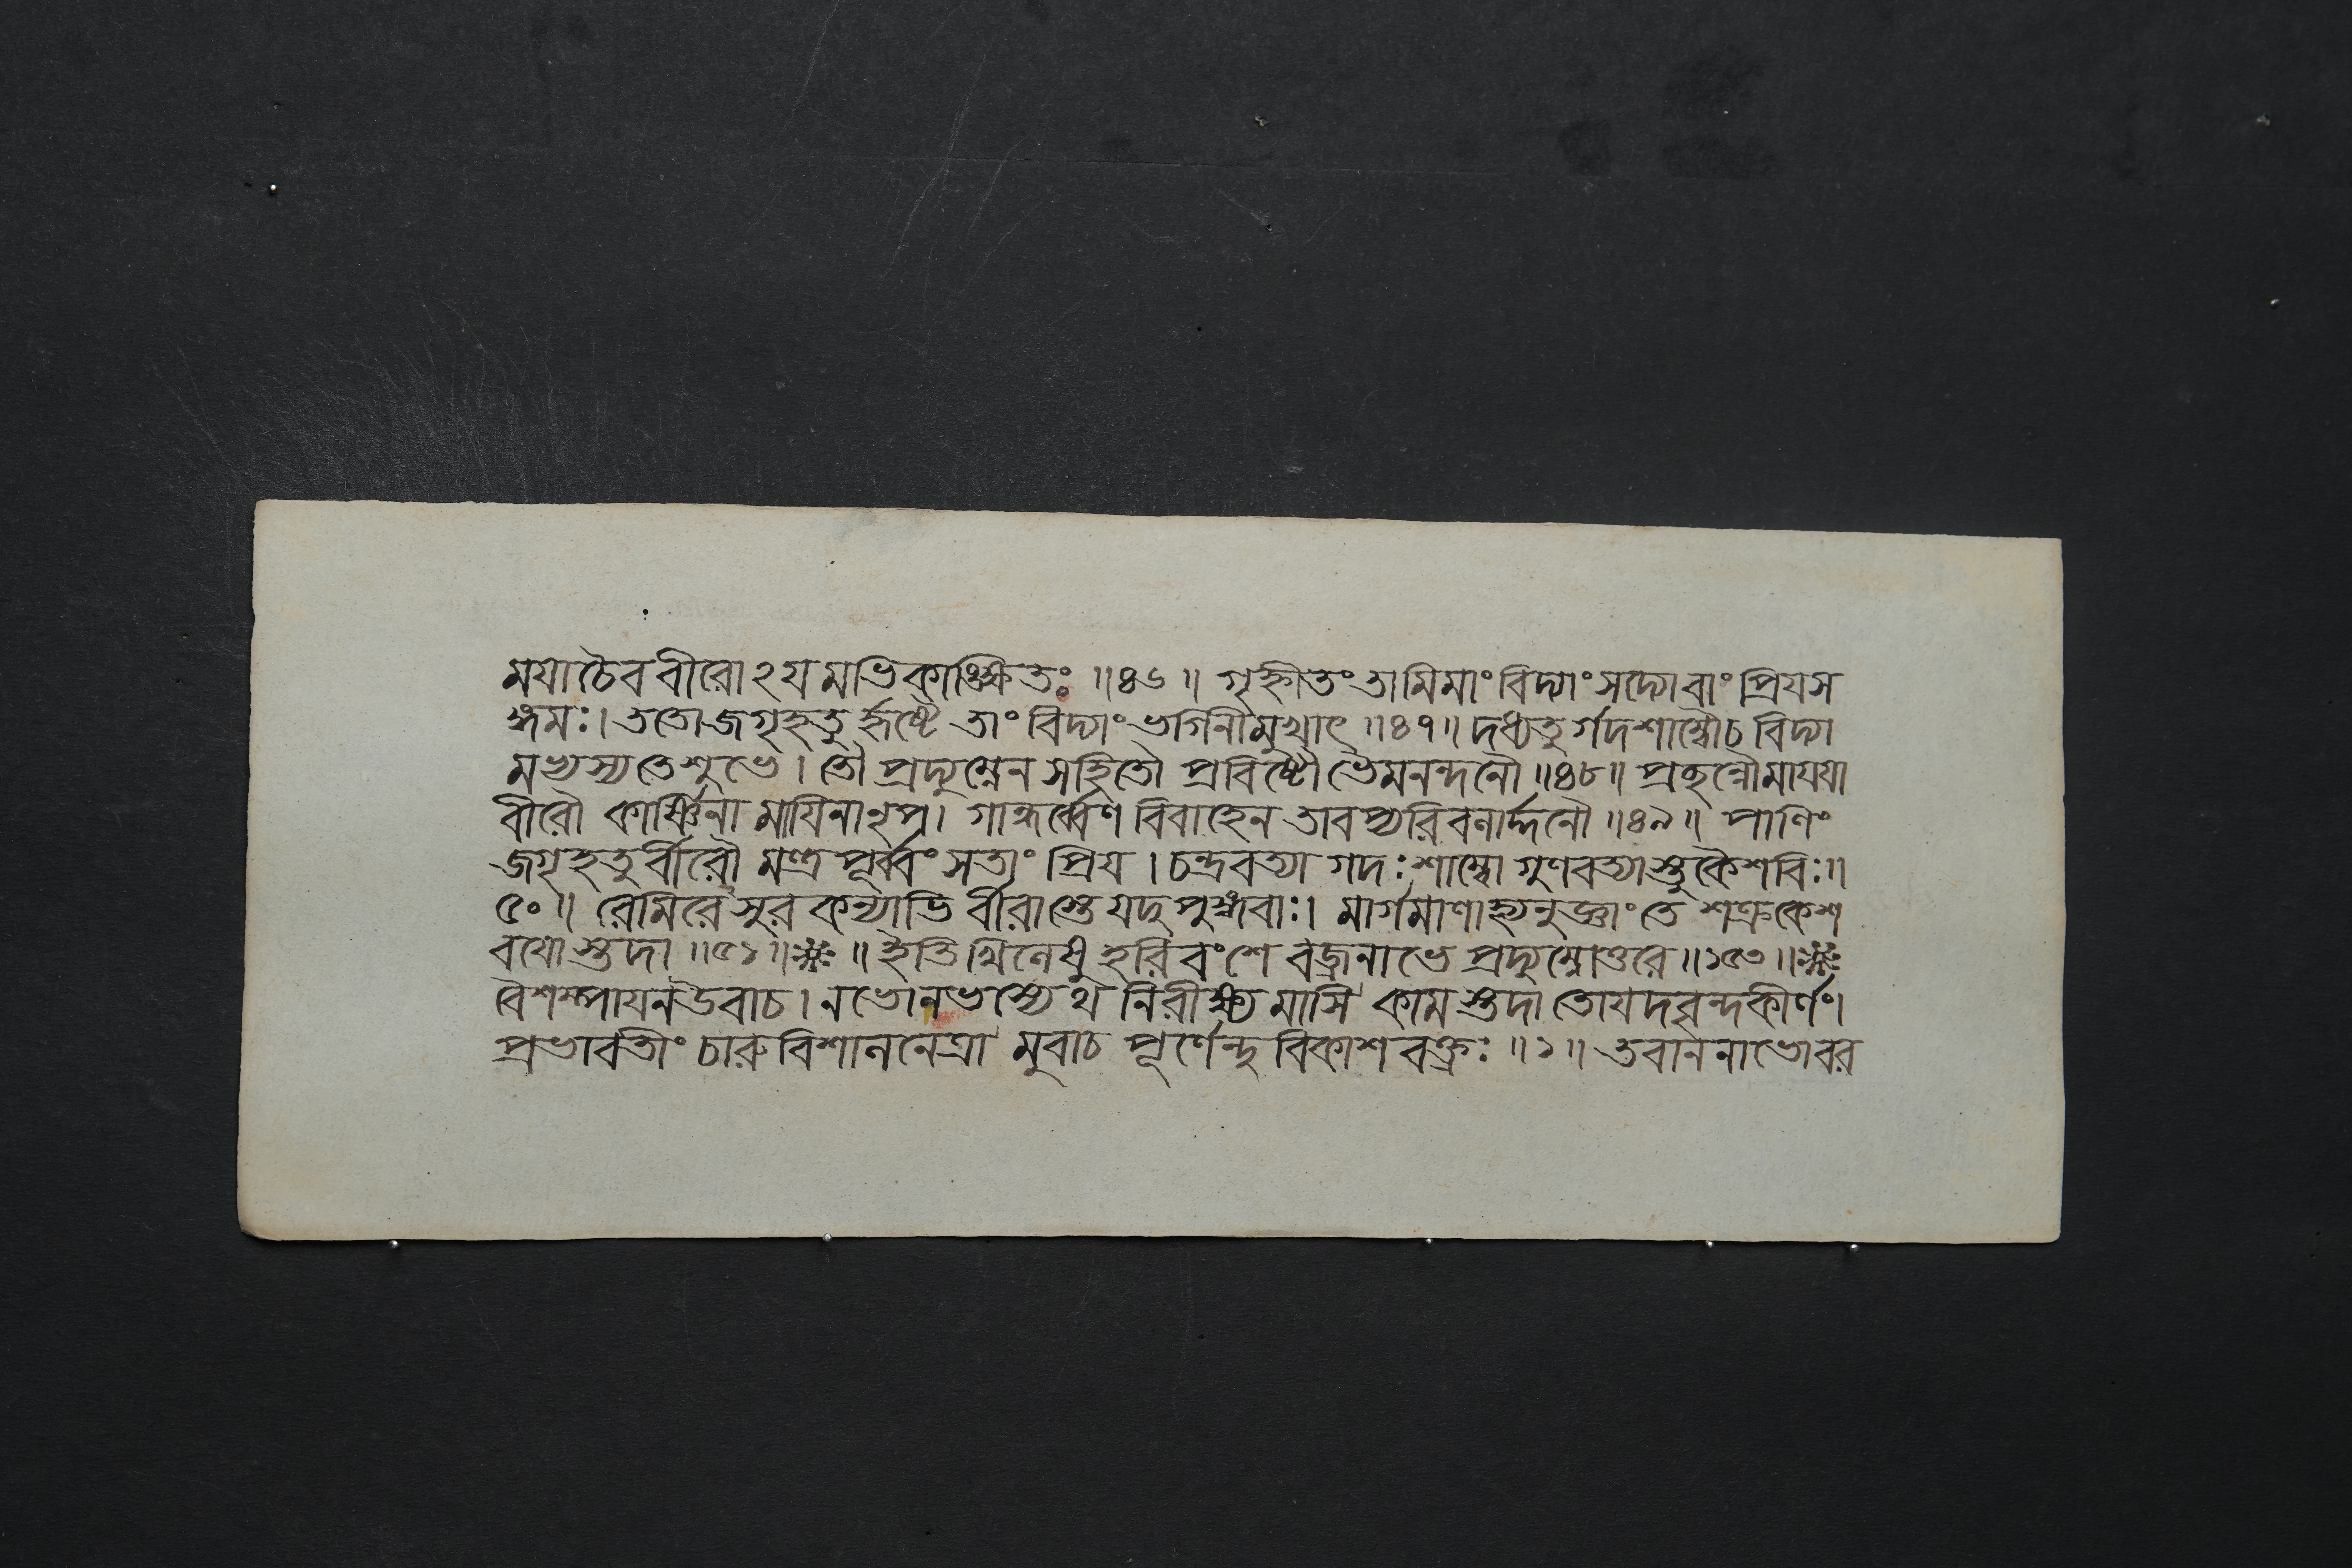 মযাচৈব বীরোঽযমভিকাঙ্ক্ষিতঃ ॥৪৬॥ গৃহ্নীতং তামিমাং বিদ্যাং সদ্যোবাং প্রিযস
ঙ্গমঃ। ততোজগৃহতুর্হৃষ্টে তাং বিদ্যাং ভগিনীমুখাৎ ॥৪৭॥ দধ্যতুর্গদশাম্বৌচ বিদ্যা
মভ্যস্যতেশুভে। তৌ প্রদ্যুম্নেন সহিতৌ প্রবিষ্টৌ ভৈমনন্দনৌ ॥৪৮॥ প্রছন্নৌমাযযা
বীরৌ কার্ষ্ণিনা মাযিনানৃপ। গান্ধর্ব্বেণ বিবাহেন তাবপ্যরিবলার্দ্দনৌ ॥৪৯॥ পাণিং
জগৃহতুর্বীরৌ মন্ত্রপূর্ব্বং সতাং প্রিয। চন্দ্রবত্যা গদঃ শাম্বো গুণবত্যাস্তুকৈশবিঃ॥
৫০॥ রেমিরেঽসুরকন্যাভির্বীরাস্তে যদুপুঙ্গবাঃ। মার্গমাণাহ্যনুজ্ঞাং তে শত্রুকেশ
বযোস্তদা ॥৫১॥ ॥ ইতি খিলেষু হরিবংশে বজ্রনাভে প্রদ্যুম্নোত্তরে ॥১৫৩॥
বৈশম্পাযনউবাচ। নভোনভস্যেথ নিরীক্ষ্য মাসি কামস্তদা তোযদবৃন্দকীর্ণং।
প্রভাবতীং চারুবিশালনেত্রা মুবাচ পূর্ণেন্দুবিকাশবক্ত্রঃ ॥১॥ তবাননাভোবর